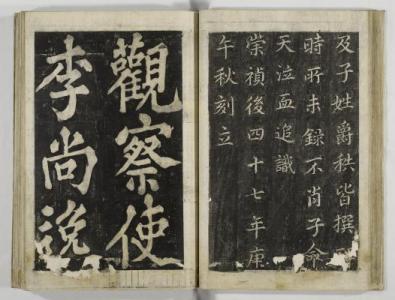 及子姓爵秩皆撰
時所未錄不肖子命
天泣血追識
崇禎後四十七年庚
午秋刻立
觀察使
李尚逸